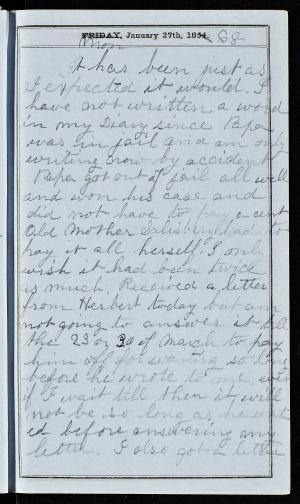 FRIDAY, January 27th, 1864. 68
Mon
It has been just as
I expected it would. I
have not written a word
in my Diary since Papa
was in jail and am only
writing now by accident
Papa got out of jail all well
and won his case and
did not have to pay a cent
Old Mother Salisbury had to
pay it all herself. I only
wish it had been twice
as much. Received a letter
from Herbert today but am
not going to answer it till
the 23 or 30 of March to pay
him off for waiting so long
before he wrote to me, even
if I wait till then it will
not be so long as he wait
ed before answering my
letter. I also got a letter